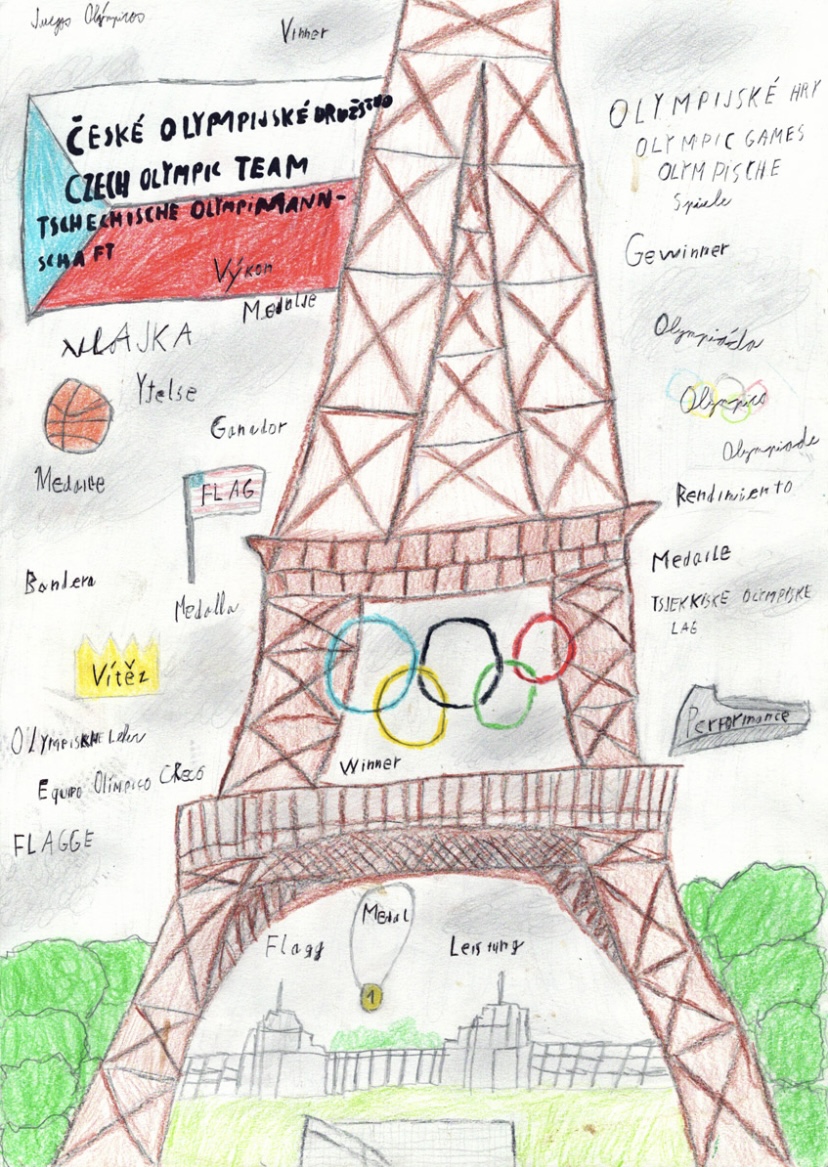 Juegos Olímpicos
Vinner
ČESKÉ OLYMPIJSKÉ DRUŽSTVO
CZECH OLYMPIC TEAM
TSCHECHISCHE OLYMPIMANN-
SCHAFT
Výkon
Medalje
VLAJKA
Ytelse
Ganador
Medaille
FLAG
Bandera
Medalla
Vítěz
OLYMPISKE Leker
EQUIPO OLÍMPICO CHECO
FLAGGE
OLYMPIJSKÉ HRY
OLYMPIC GAMES
OLYMPISCHE
Spiele
Gewinner
Olympiáda
Olympics
Olympiade
Rendimiento
Medaile
TSJEKKISKE OLYMPISKE
LAG
Performance
Winner
Medal
Flagg
Leistung
1